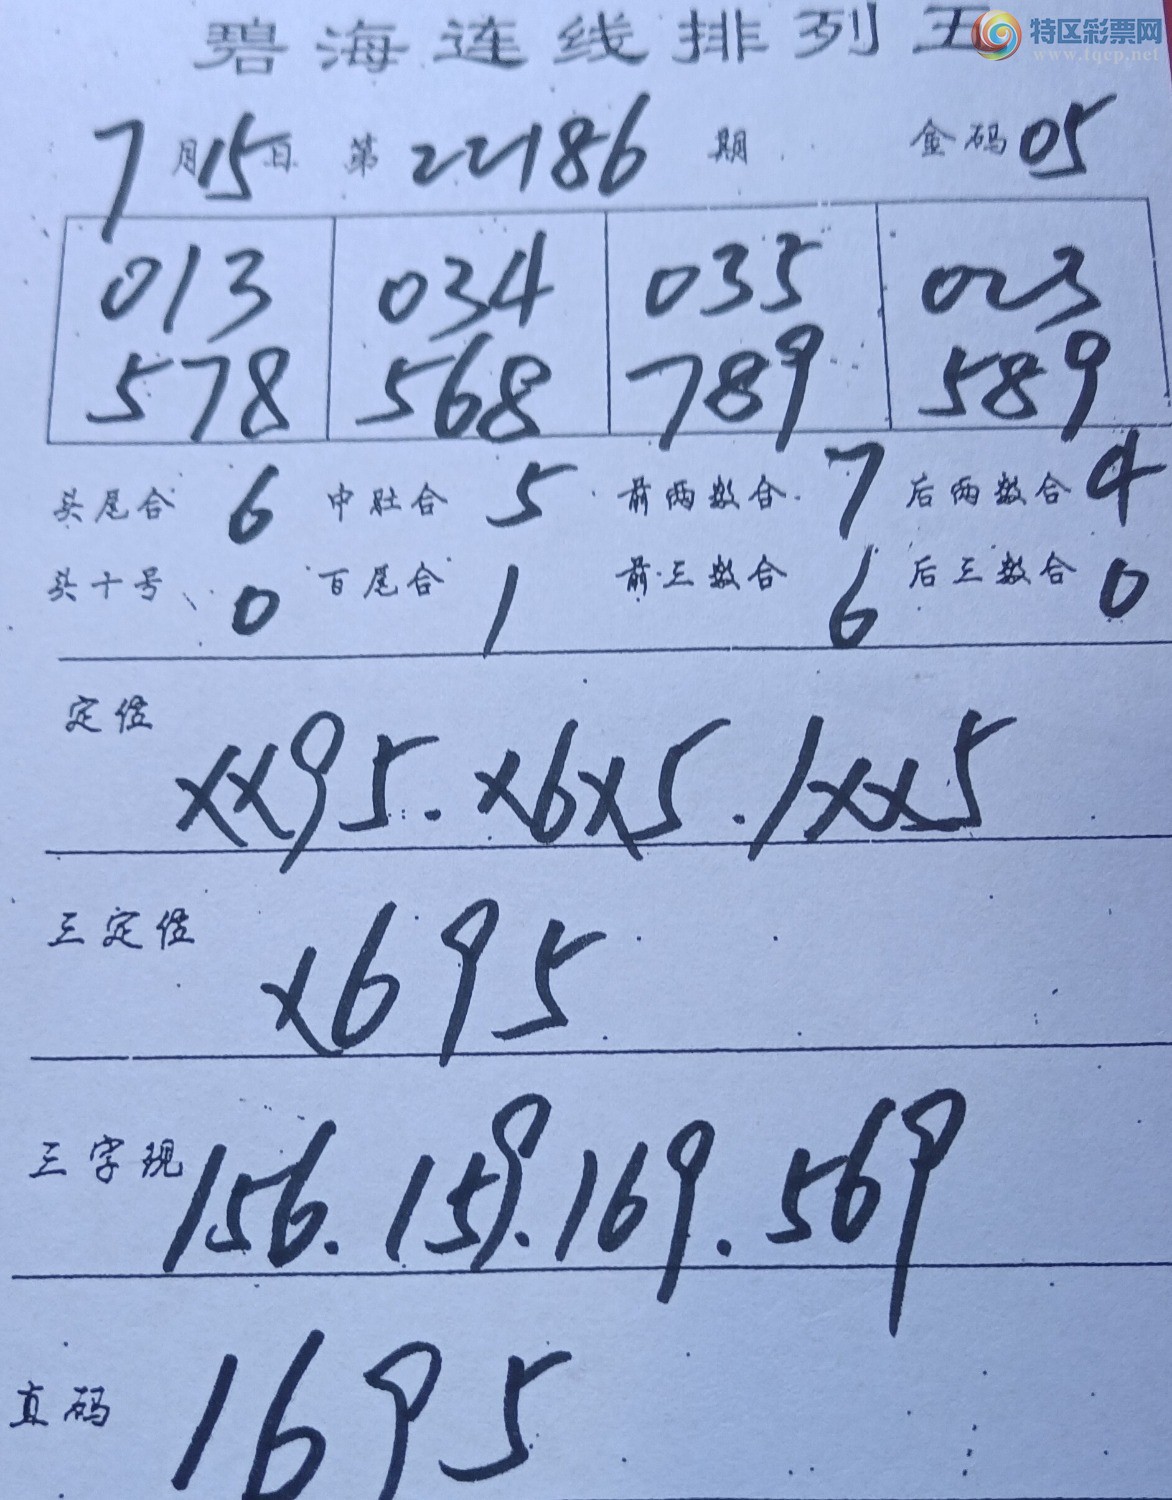 碧海连线排列五
特区彩票网
www.tqcp.net
7月15日 第22186期 金码05
013 034 035 023
578 568 789 589
头尾合 6 中肚合 5 前两数合 7 后两数合 4
头十号 0 百尾合 1 前三数合 6 后三数合 0
定位 XX95.X6X5.1XX5
三定位 X695
三字现 156.159.169.569
直码 1695